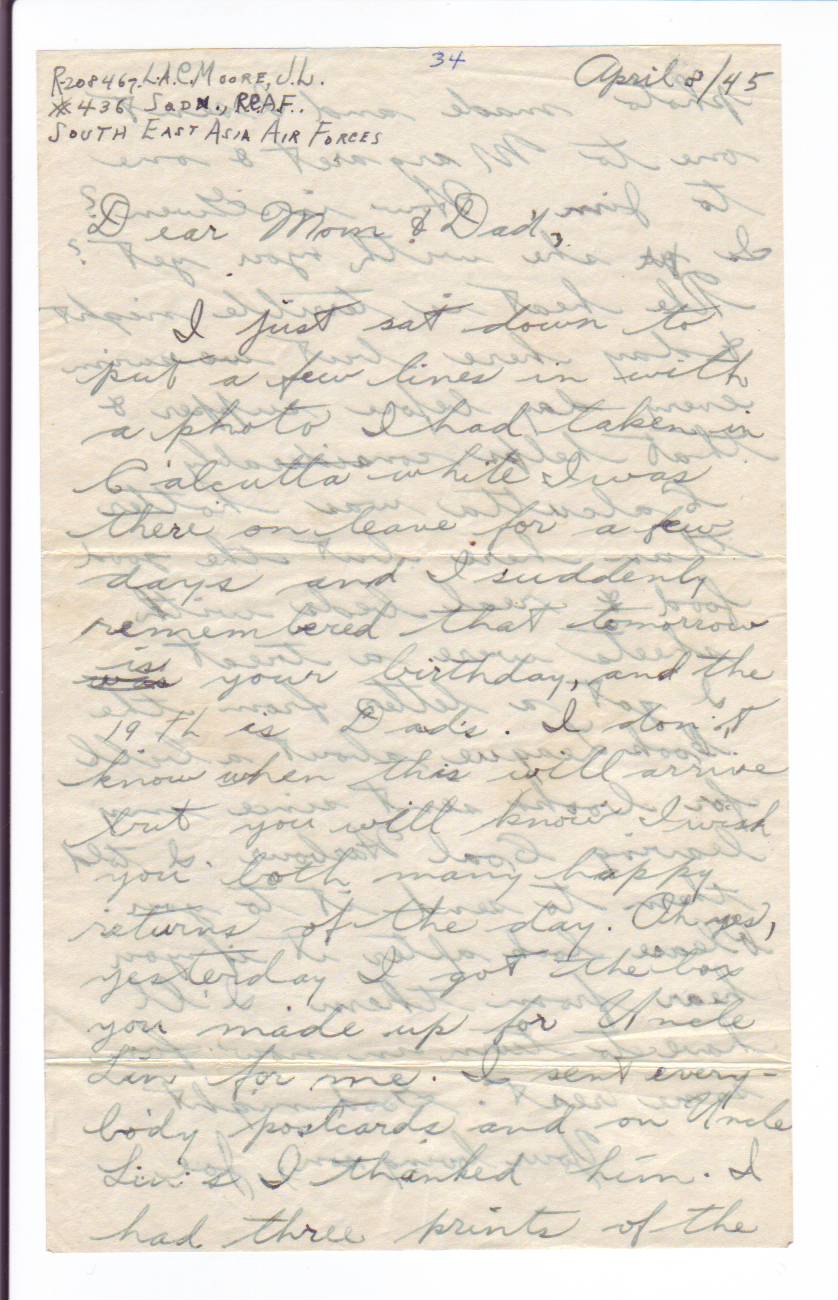 34
R-208467. L.A.C. MOORE, J.L.
April 8/45
436 SQDN., R.C.A.F..
SOUTH EAST ASIA AIR FORCES
Dear Mom & Dad,
I just sat down to
put a few lines in with
a photo I had taken in
Calcutta while I was
there on leave for a few
days and I suddenly
remembered that tomorrow
is
was your birthday, and the
19th is Dad's. I don't
know when this will arrive
but you will know I wish
you both many happy
returns of the day. Oh yes,
yesterday I got the box
you made up for Uncle
Liv for me. I sent every-
body postcards and on Uncle
Liv's I thanked him. I
had three prints of the